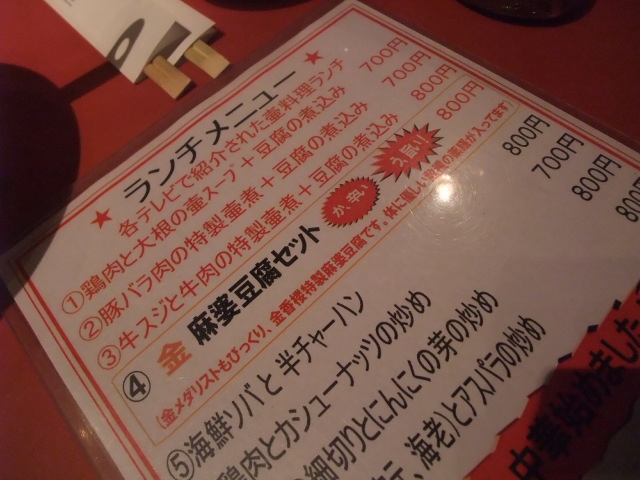 ★ ランチメニュー ★
各テレビで紹介された壷料理ランチ
①鶏肉と大根の壷スープ+豆腐の煮込み 700円
②豚バラ肉の特製壷煮+豆腐の煮込み 700円
③牛スジと牛肉の特製壷煮+豆腐の煮込み 800円
④ 金 麻婆豆腐セット か、辛い う、旨い 800円
(金メダリストもびっくり、金香楼特製麻婆豆腐です。体に優しい
薬膳が入ってます)
⑤海鮮ソバと半チャーハン 800円
鶏肉とカシューナッツの炒め 700円
細切りとにんにくの芽の炒め 800円
海老)とアスパラの炒め 800
中華始めました